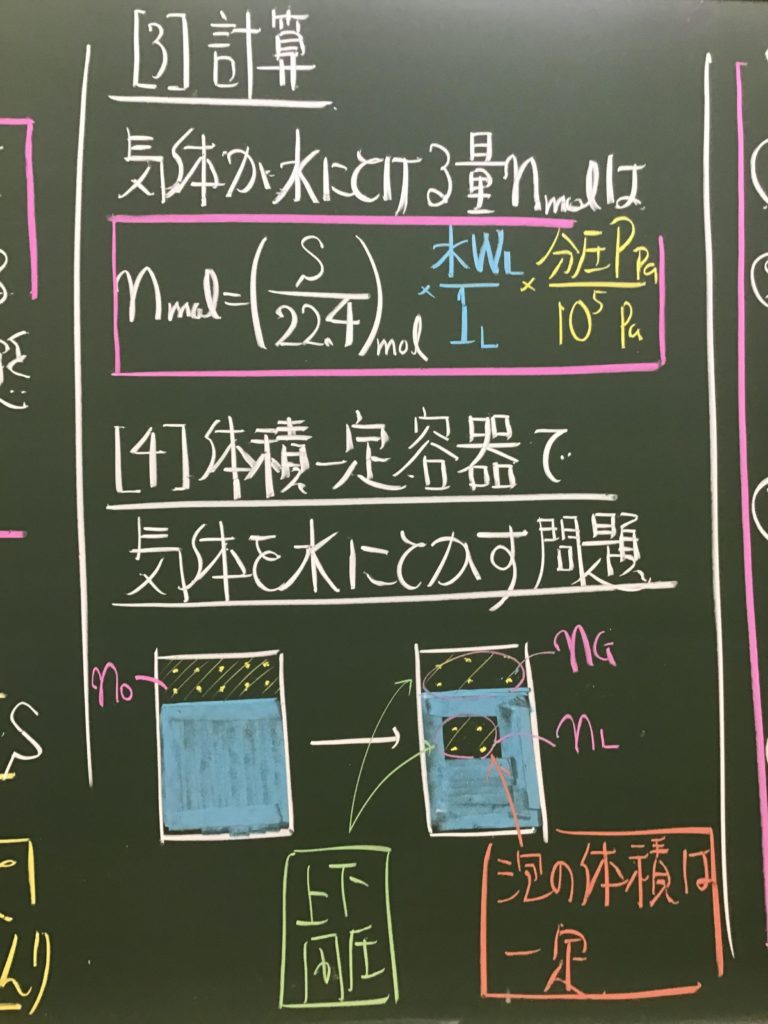 [3] 計算
気体が水にとける量n molは
n mol = (S/22.4) mol × 水W L/1 L × 分圧P Pa/10⁵ Pa
[4] 体積一定容器で
気体を水にとかす問題
n₀
nG
nL
上下
同圧
泡の体積は
一定
S